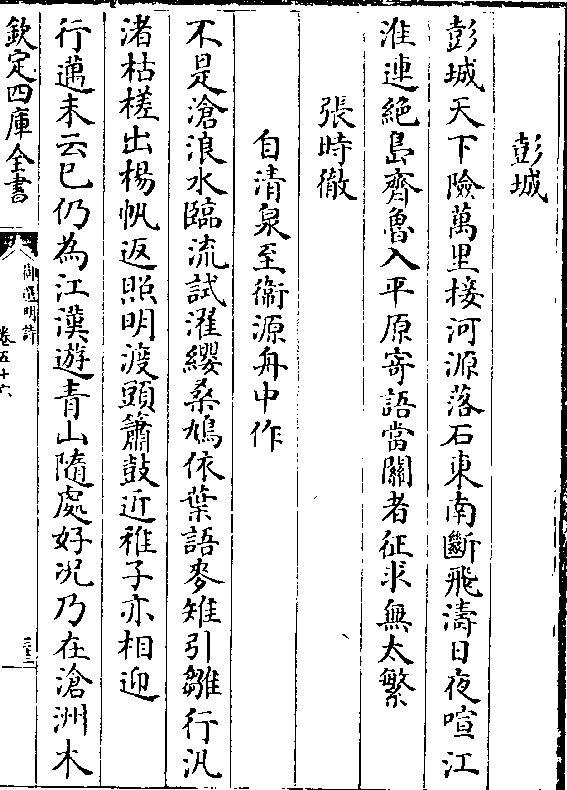 彭城
彭城天下險萬里接河源落石東南斷飛濤日夜喧江
淮連絶島齊魯入平原寄語當關者征求無太繁
張時徹
自清泉至衞源舟中作
不是滄浪水臨流試濯纓桑鳩依葉語麥雉引雛行汎
渚枯槎出楊帆返照明渡頭簫鼓近稚子亦相迎
行邁未云已仍為江漢遊青山隨處好况乃在滄洲木
欽定四庫全書
御選明詩
卷五十六